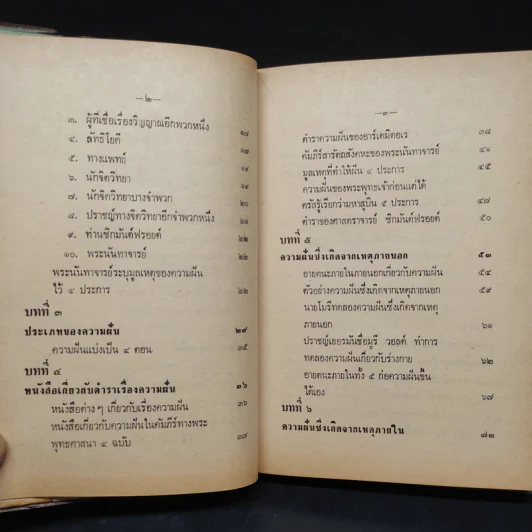 —๒—
๓. ผู้ที่เชื่อเรื่องวิญญาณอีกพวกหนึ่ง ๑๗
๔. ลัทธิโยคี ๑๗
๕. ทางแพทย์ ๑๙
๖. นักจิตวิทยา
๗. นักจิตวิทยาบางจำพวก ๒๐
๘. ปราชญ์ทางจิตวิทยาอีกจำพวกหนึ่ง
๙. ท่านซิกมันด์ฟรอยด์ ๒๒
๑๐. พระนันทาจารย์ ๒๒
พระนันทาจารย์ระบุมูลเหตุของความฝัน
ไว้ ๔ ประการ ๒๒
บทที่ ๓
ประเภทของความฝัน ๒๙
ความฝันแบ่งเป็น ๔ ตอน ๓๕
บทที่ ๔
หนังสือเกี่ยวกับตำราเรื่องความฝัน ๓๖
หนังสือต่าง ๆ เกี่ยวกับเรื่องความฝัน ๓๖
หนังสือเกี่ยวกับความฝันในคัมภีร์ทางพระ
พุทธศาสนา ๔ ฉบับ ๓๗
—๓—
ตำราความฝันของอาร์เตมิดอเร ๓๘
คัมภีร์สารัตถสังคหะของพระนันทาจารย์
มูลเหตุที่ทำให้ฝัน ๔ ประการ ๔๕
ความฝันของพระพุทธเจ้าก่อนแต่ได้
ตรัสรู้เรียกว่ามหาสุบิน ๕ ประการ ๔๗
ตำราของศาสตราจารย์ ซิกมันด์ฟรอยด์ ๕๐
บทที่ ๕
ความฝันซึ่งเกิดจากเหตุภายนอก ๕๓
อายตนะภายในภายนอกเกี่ยวกับความฝัน ๕๔
ตัวอย่างความฝันซึ่งเกิดจากเหตุภายนอก ๕๙
นายโมรีทดลองความฝันซึ่งเกิดจากเหตุ
ภายนอก ๖๑
ปราชญ์เยอรมันชื่อมูรี วอลด์ ทำการ
ทดลองความฝันเกี่ยวกับร่างกาย ๖๒
อายตนะภายในทั้ง ๕ ก่อความฝันขึ้น
ได้เอง ๖๗
บทที่ ๖
ความฝันซึ่งเกิดจากเหตุภายใน ๗๓